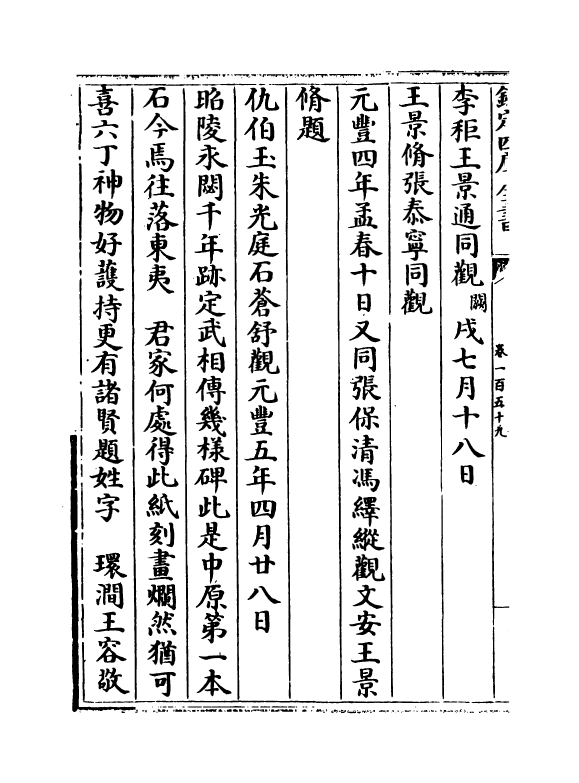 欽定四庫全書
卷一百五十九
李秬王景通同觀 闕 戌七月十八日
王景脩張泰寧同觀
元豐四年孟春十日又同張保清馮繹縱觀文安王景
脩題
仇伯玉朱光庭石蒼舒觀元豐五年四月廿八日
昭陵永閟千年跡定武相傳幾様碑此是中原第一本
石今焉往落東夷 君家何處得此紙刻畫爛然猶可
喜六丁神物好䕶持更有諸賢題姓字 環澗王容敬